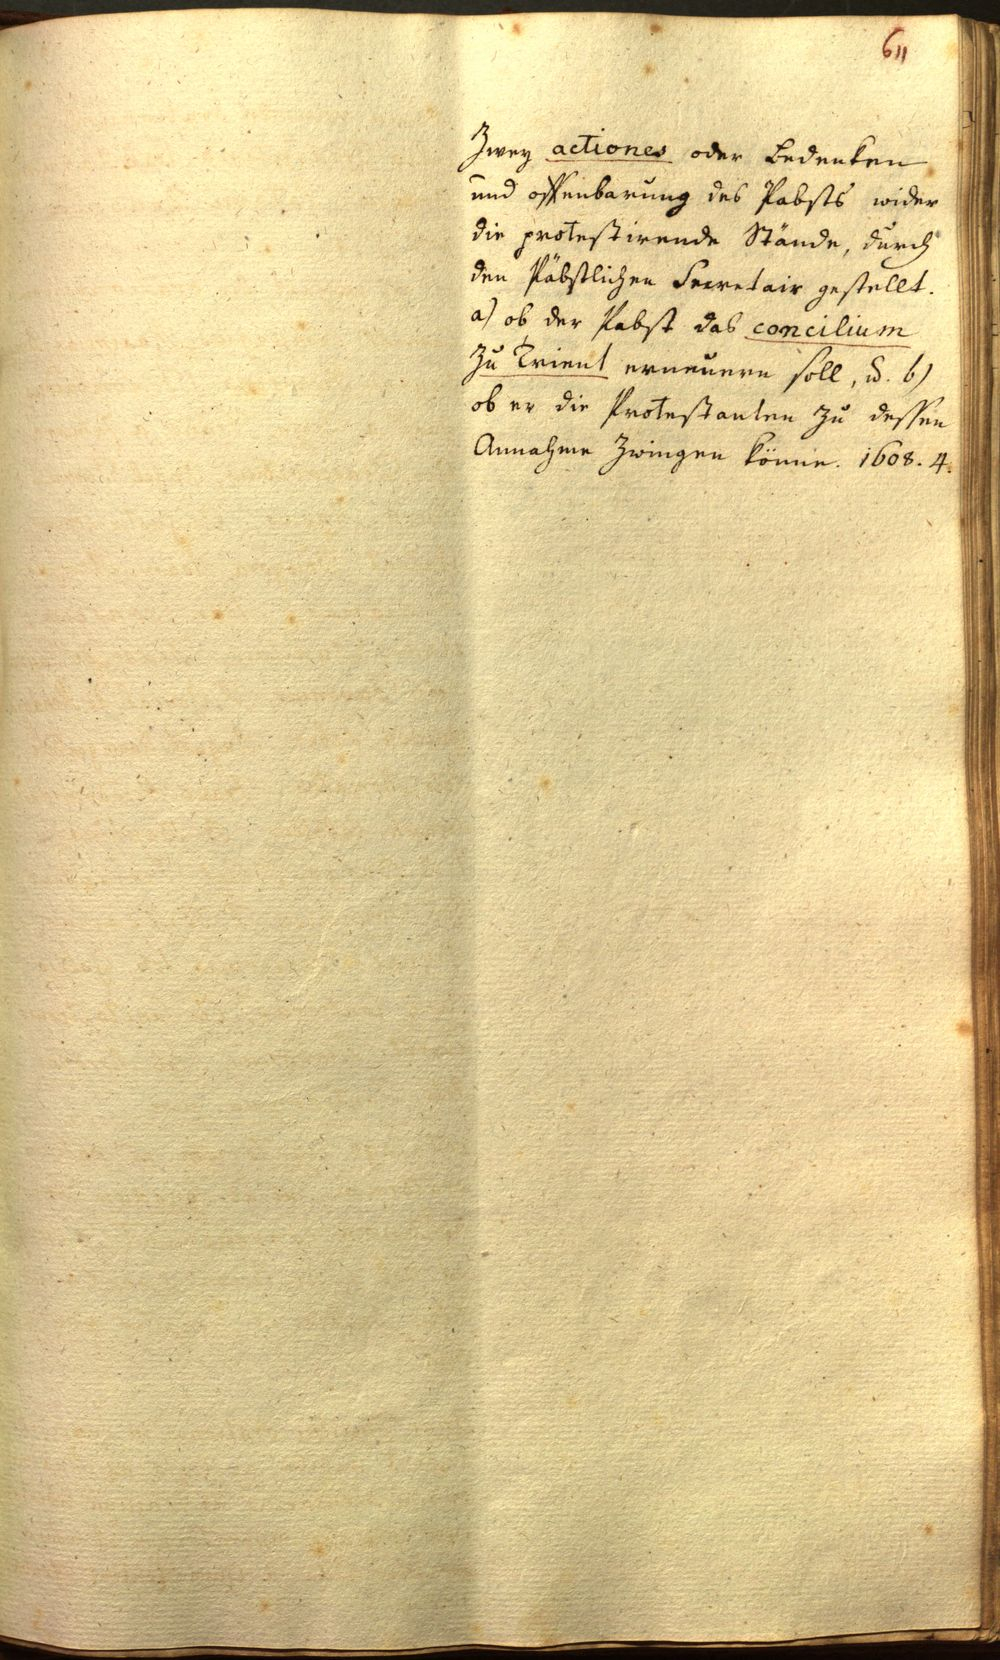 611
Zwey actiones oder Bedenken
und offenbarung des Pabsts wider
die protestirende Stände, durch
den Päbstlichen Secretair gestellt.
a) ob der Pabst das concilium
zu Trient erneuern soll, u. b)
ob er die Protestanten zu dessen
Annahme zwingen könne. 1608. 4.